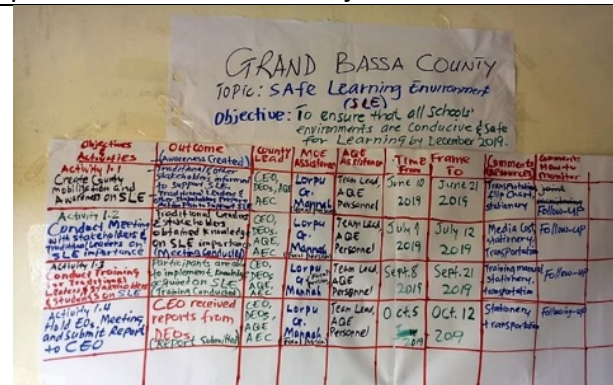 GRAND BASSA COUNTY
TOPIC: SAfe Learning Environment
(SLE)
Objective: To ensure that all schools'
environments are Conducive & Safe
for Learning by December 2019.
Objectives & Activities
Outcome
(Awareness Created)
County Lead
MOE Assistance
AQE Assistance
Time Frame
From
To
Comments/Resources
Comments How to monitor
Activity 1.1
Create County
mobilization and
Awareness on SLE
to support SLE
CEO,
DEOs, AQE
AEC
Lorpu
G.
Mannah
Team Lead,
AQE
Personnel
June 10
2019
June 21
2019
Transportation
Flip Chart,
stationery
Joint
Follow-UP
Activity 1.2
Conduct Meeting
with stakeholders &
traditional Leaders on
SLE importance
Traditional Leaders
& stakeholders
obtained Knowledge
on SLE importance
(Meeting Conducted)
CEO,
DEOs,
AQE,
AEC
Lorpu
G.
Mannah
Team Lead,
AQE
Personnel
July 9
2019
July 12
2019
Media Cost,
stationery,
transportation
Follow-UP
Activity 1.3
Conduct Training
for Traditional
students on SLE
Participants
to implement Knowledge
acquired on SLE
Training Conducted)
CEO,
DEOs,
AQE,
AEC
Lorpu
G.
Mannah
Team Lead,
AQE
Personnel
Sept. 8
2019
Sept. 21
2019
Training manual,
stationery,
transportation
Follow-UP
Activity 1.4
Hold EOs, Meeting
and Submit Report
to CEO
CEO received
reports from
DEOs
(Report Submitted)
CEO,
DEOs,
AQE
AEC
Lorpu
G.
Mannah
Team Lead,
AQE
Personnel
Oct. 5
2019
Oct. 12
2019
Stationery
& transportation
Following-UP